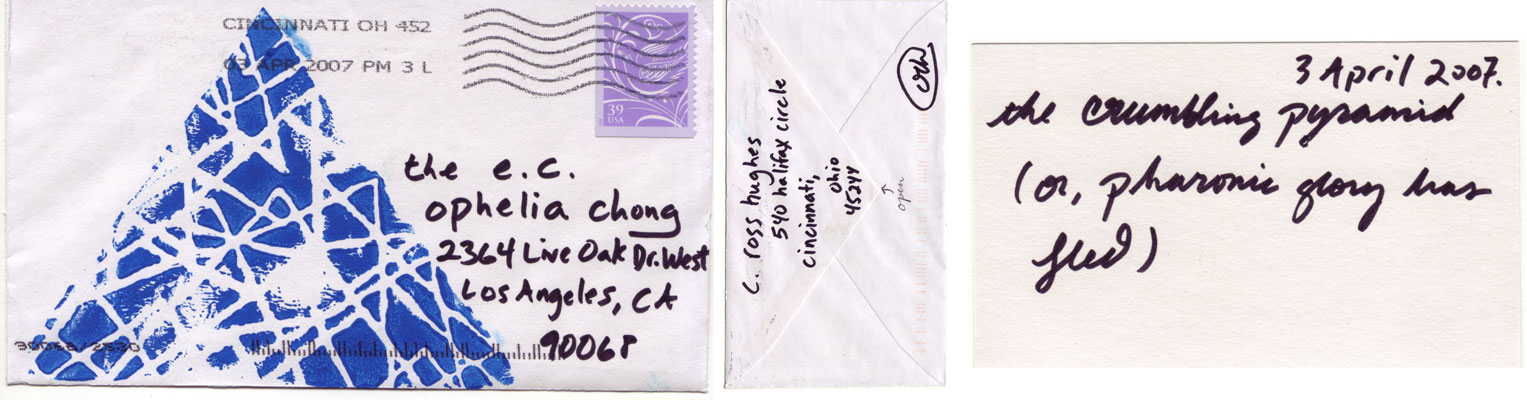 CINCINNATI OH 452
03 APR 2007 PM 3 L
39
USA
the e.c.
ophelia chong
2364 Live Oak Dr. West
Los Angeles, CA
90068
C. ross hughes
540 halifax circle
cincinnati,
ohio
45244
open
3 April 2007.
the crumbling pyramid
(or, pharonic glory has
fled)